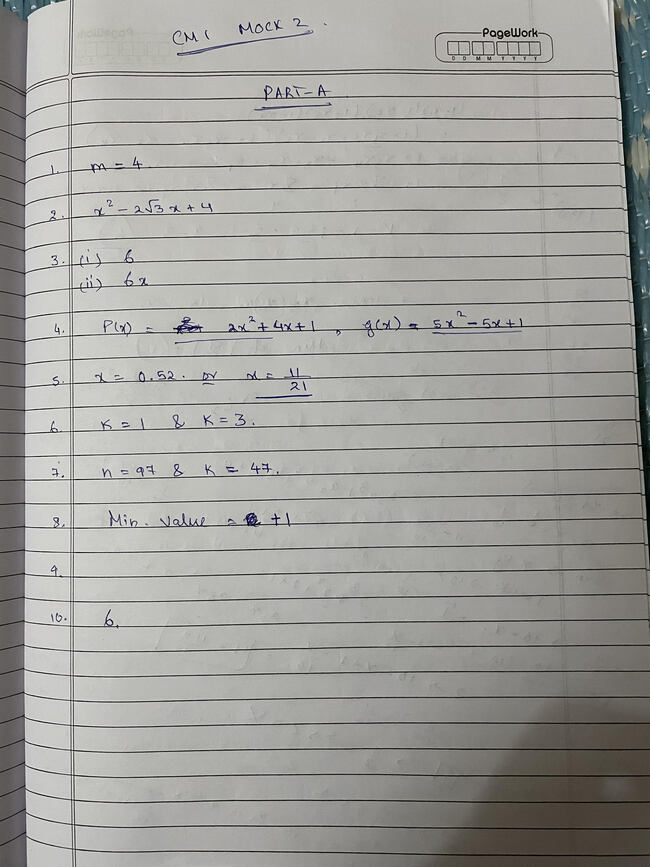 CMI MOCK 2.
PageWork
D D M M Y Y Y Y
PART-A
1. m = 4
2. x² - 2√3 x + 4
3. (i) 6
(ii) 6x
4. P(x) = 2x² + 4x + 1, g(x) = 5x² - 5x + 1
5. x = 0.52. or x = 11/21
6. K = 1 & K = 3.
7. n = 97 & K = 47.
8. Min. value = +1
9.
10. 6.